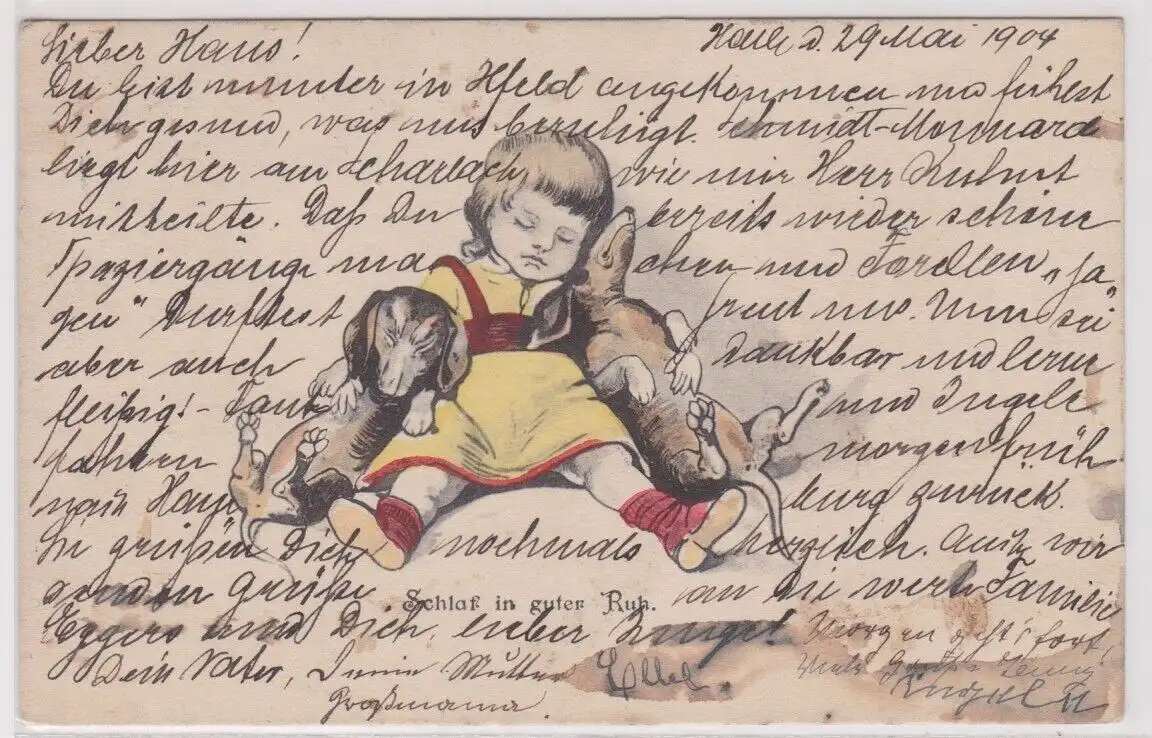 Lieber Hans! Halle d. 29 Mai 1904
Du bist munter in Ilfeld angekommen und fühlst
Dich gesund, was uns beruhigt. Schmidt-Monnard
liegt hier am Scharlach, wie mir Herr Kuhnt
mittheilte. Daß Du bereits wieder schöne
Spaziergänge machen und Forellen „ja
gen" durftest freut uns. Nun sei
aber auch dankbar und lerne
fleißig! - Tante und Ingele
fahren morgen früh
nach Hamburg zurück.
Sie grüßen Dich nochmals herzlich. Auch wir
senden Grüße an die werte Familie
Schlaf in guter Ruh.
Eggers und Dich, lieber Junge! Morgen geht's fort,
Dein Vater, Deine Mutter Viele Grüße
Großmama.